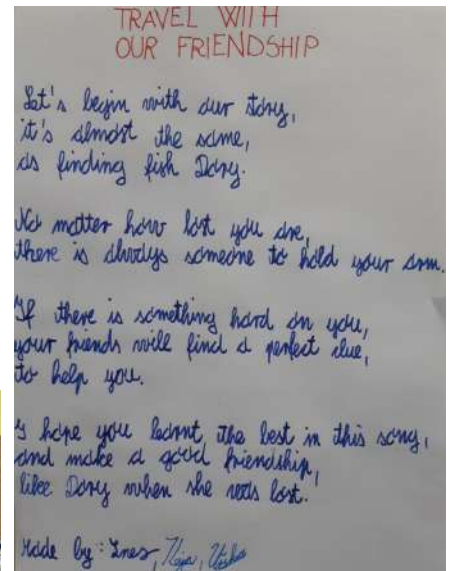 TRAVEL WITH
OUR FRIENDSHIP
Let's begin with our story,
it's almost the same,
as finding fish Dory.
No matter how lost you are,
there is always someone to hold your arm.
If there is something hard on you,
your friends will find a perfect clue,
to help you.
I hope you learnt the best in this song,
and make a good friendship,
like Dory when she was lost.
Made by: Ines,